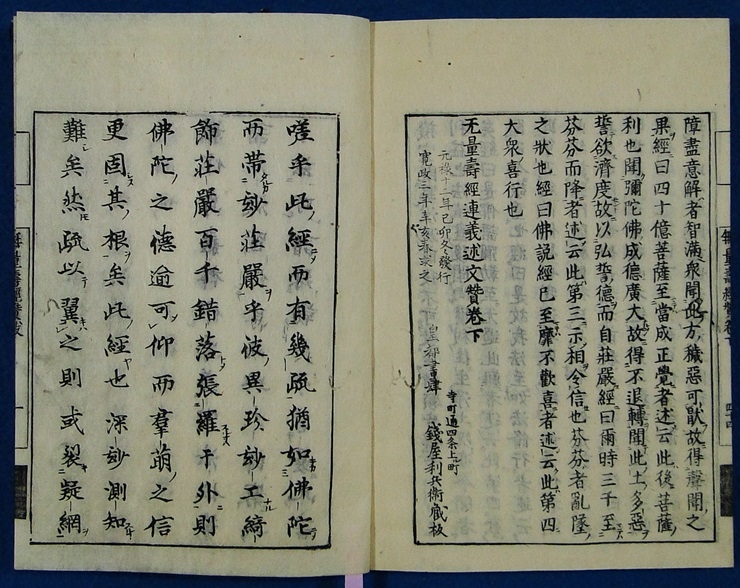 障盡意解者智滿衆聞此方穢惡可猒故得聲聞之
果經曰四十億菩薩至當成正覺者述云此後菩薩
利也聞彌陀佛成德廣大故得不退轉聞此土多惡
誓欲濟度故以弘誓德而自莊嚴經曰爾時三千至
芬芬而降者述云此第三示相令信也芬芬者亂墜
之狀也經曰佛説經已至靡不歡喜者述云此第四
大衆喜行也
无量壽經連義述文贊卷下
元禄十二年己卯冬發行
寛政三年辛亥春求之
皇都書肆
寺町通四条上町
錢屋利兵衛藏板
嗟乎此經而有幾疏猶如佛陀
而帶妙莊嚴乎彼異珍妙工綺
飾莊嚴百千錯落張羅于外則
佛陀之德逾可仰而羣萠之信
更固其根矣此經也深妙測知
難矣然疏以翼之則或裂疑網